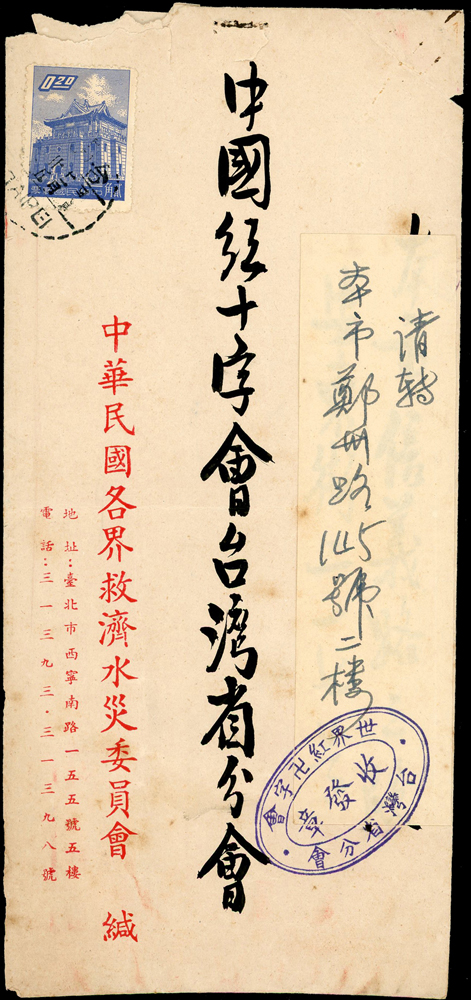 请转
本市鄭州路145號二楼
世界紅卍字會
台灣省分會
收發章
中國红十字會台湾省分會
中華民國各界救濟水災委員會 緘
地址：臺北市西寧南路一五五號五樓
電話：三一三九三．三一三九八號
0.20
TAIPEI